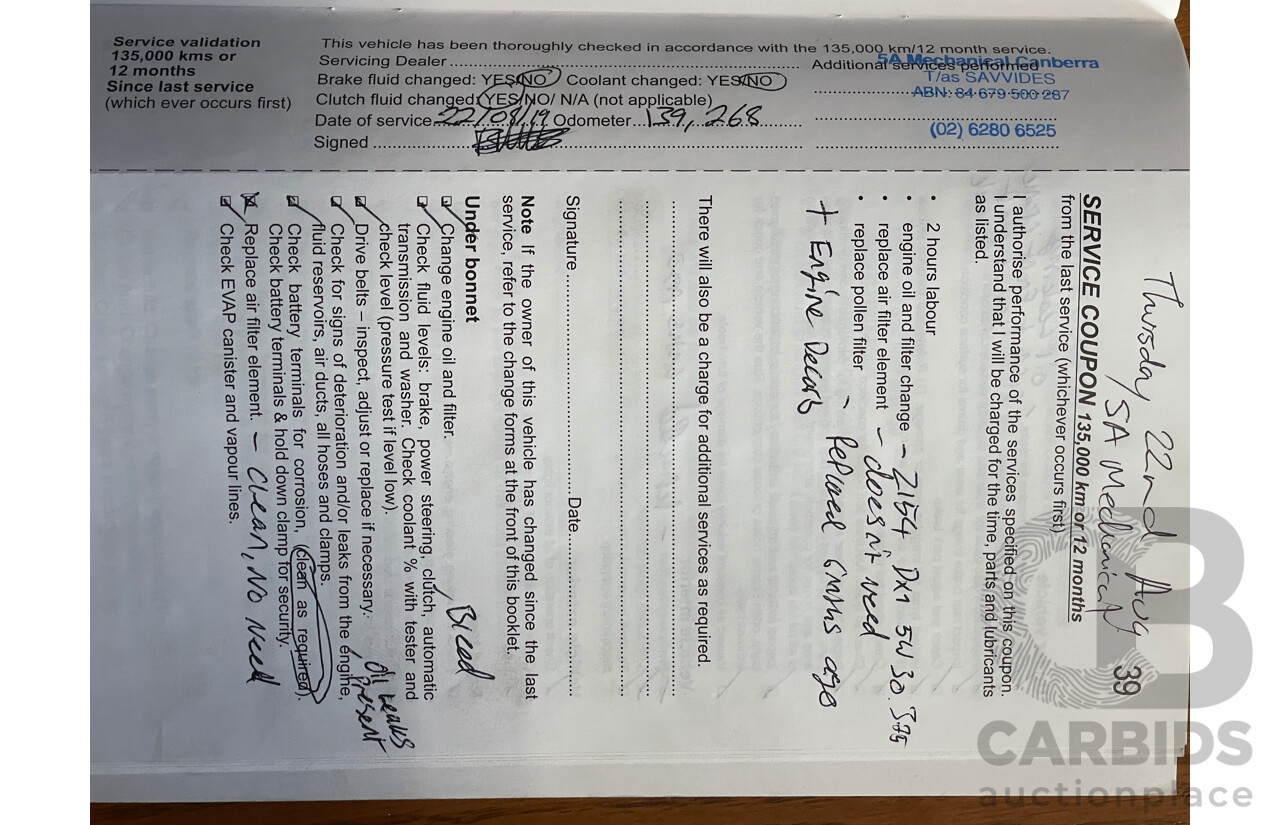 Service validation
135,000 kms or
12 months
Since last service
(which ever occurs first)
This vehicle has been thoroughly checked in accordance with the 135,000 km/12 month service.
Servicing Dealer
Additional services performed
5A Mechanical Canberra
T/as SAVVIDES
ABN: 84 679 500 287
(02) 6280 6525
Brake fluid changed: YES/NO Coolant changed: YES/NO
Clutch fluid changed: YES/NO/ N/A (not applicable)
Date of service 22/08/19 Odometer 139,268
Signed
Thursday 22nd Aug
5A Mechanical
39
SERVICE COUPON 135,000 km or 12 months
from the last service (whichever occurs first)
I authorise performance of the services specified on this coupon.
I understand that I will be charged for the time, parts and lubricants
as listed.
• 2 hours labour
• engine oil and filter change - Z154 DX1 5W30 3.75
• replace air filter element - doesn't need
• replace pollen filter -
+ Engine Decarb
There will also be a charge for additional services as required.
Signature Date
Note If the owner of this vehicle has changed since the last
service, refer to the change forms at the front of this booklet.
Under bonnet
Change engine oil and filter.
Bleed
Check fluid levels: brake, power steering, clutch, automatic
transmission and washer. Check coolant % with tester and
check level (pressure test if level low).
Drive belts – inspect, adjust or replace if necessary.
oil leaks
present
Check for signs of deterioration and/or leaks from the engine,
fluid reservoirs, air ducts, all hoses and clamps.
Check battery terminals for corrosion, (clean as required).
Check battery terminals & hold down clamp for security.
Replace air filter element. - Clean, No need
Check EVAP canister and vapour lines.
CARBIDS
auctionplace